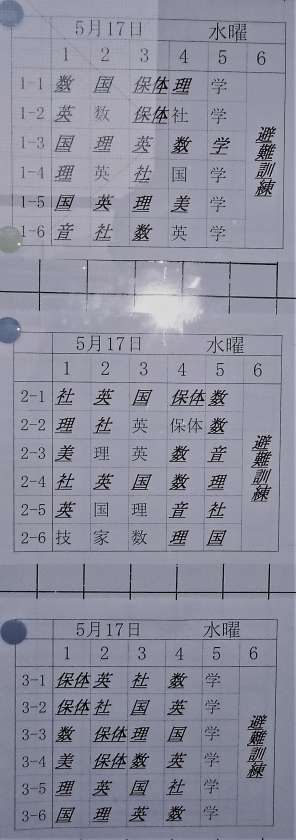 5月17日 水曜
1 2 3 4 5 6
1-1 数 国 保体 理 学
1-2 英 数 保体 社 学
1-3 国 理 英 数 学
1-4 理 英 社 国 学
1-5 国 英 理 美 学
1-6 音 社 数 英 学
避難訓練
5月17日 水曜
1 2 3 4 5 6
2-1 社 英 国 保体 数
2-2 理 社 英 保体 数
2-3 美 理 英 数 音
2-4 社 英 国 数 理
2-5 英 国 理 音 社
2-6 技 家 数 理 国
避難訓練
5月17日 水曜
1 2 3 4 5 6
3-1 保体 英 社 数 学
3-2 保体 社 国 英 学
3-3 数 保体 理 国 学
3-4 美 保体 数 英 学
3-5 理 英 国 社 学
3-6 国 理 英 数 学
避難訓練